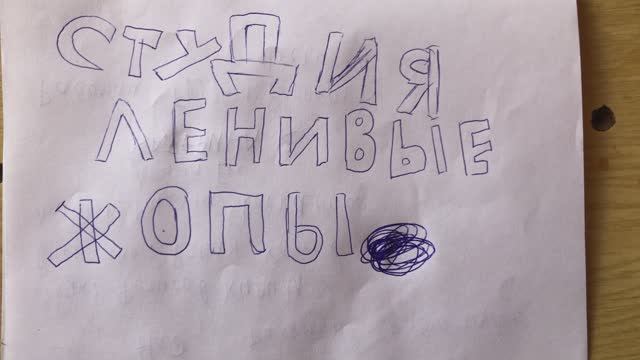 СТУДИЯ
ЛЕНИВЫЕ
ЖОПЫ